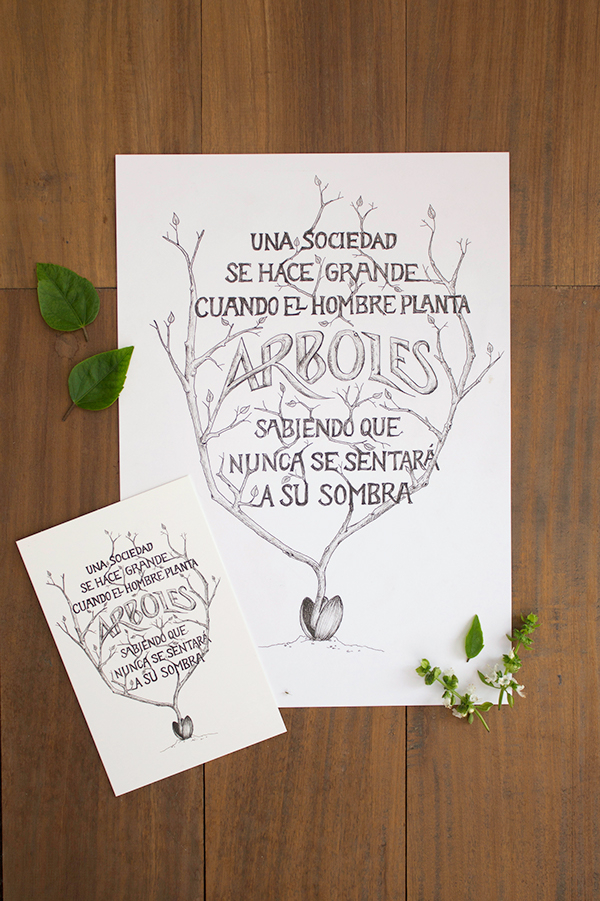 UNA SOCIEDAD
SE HACE GRANDE
CUANDO EL HOMBRE PLANTA
ARBOLES
SABIENDO QUE
NUNCA SE SENTARÁ
A SU SOMBRA
UNA SOCIEDAD
SE HACE GRANDE
CUANDO EL HOMBRE PLANTA
ARBOLES
SABIENDO QUE
NUNCA SE SENTARÁ
A SU SOMBRA